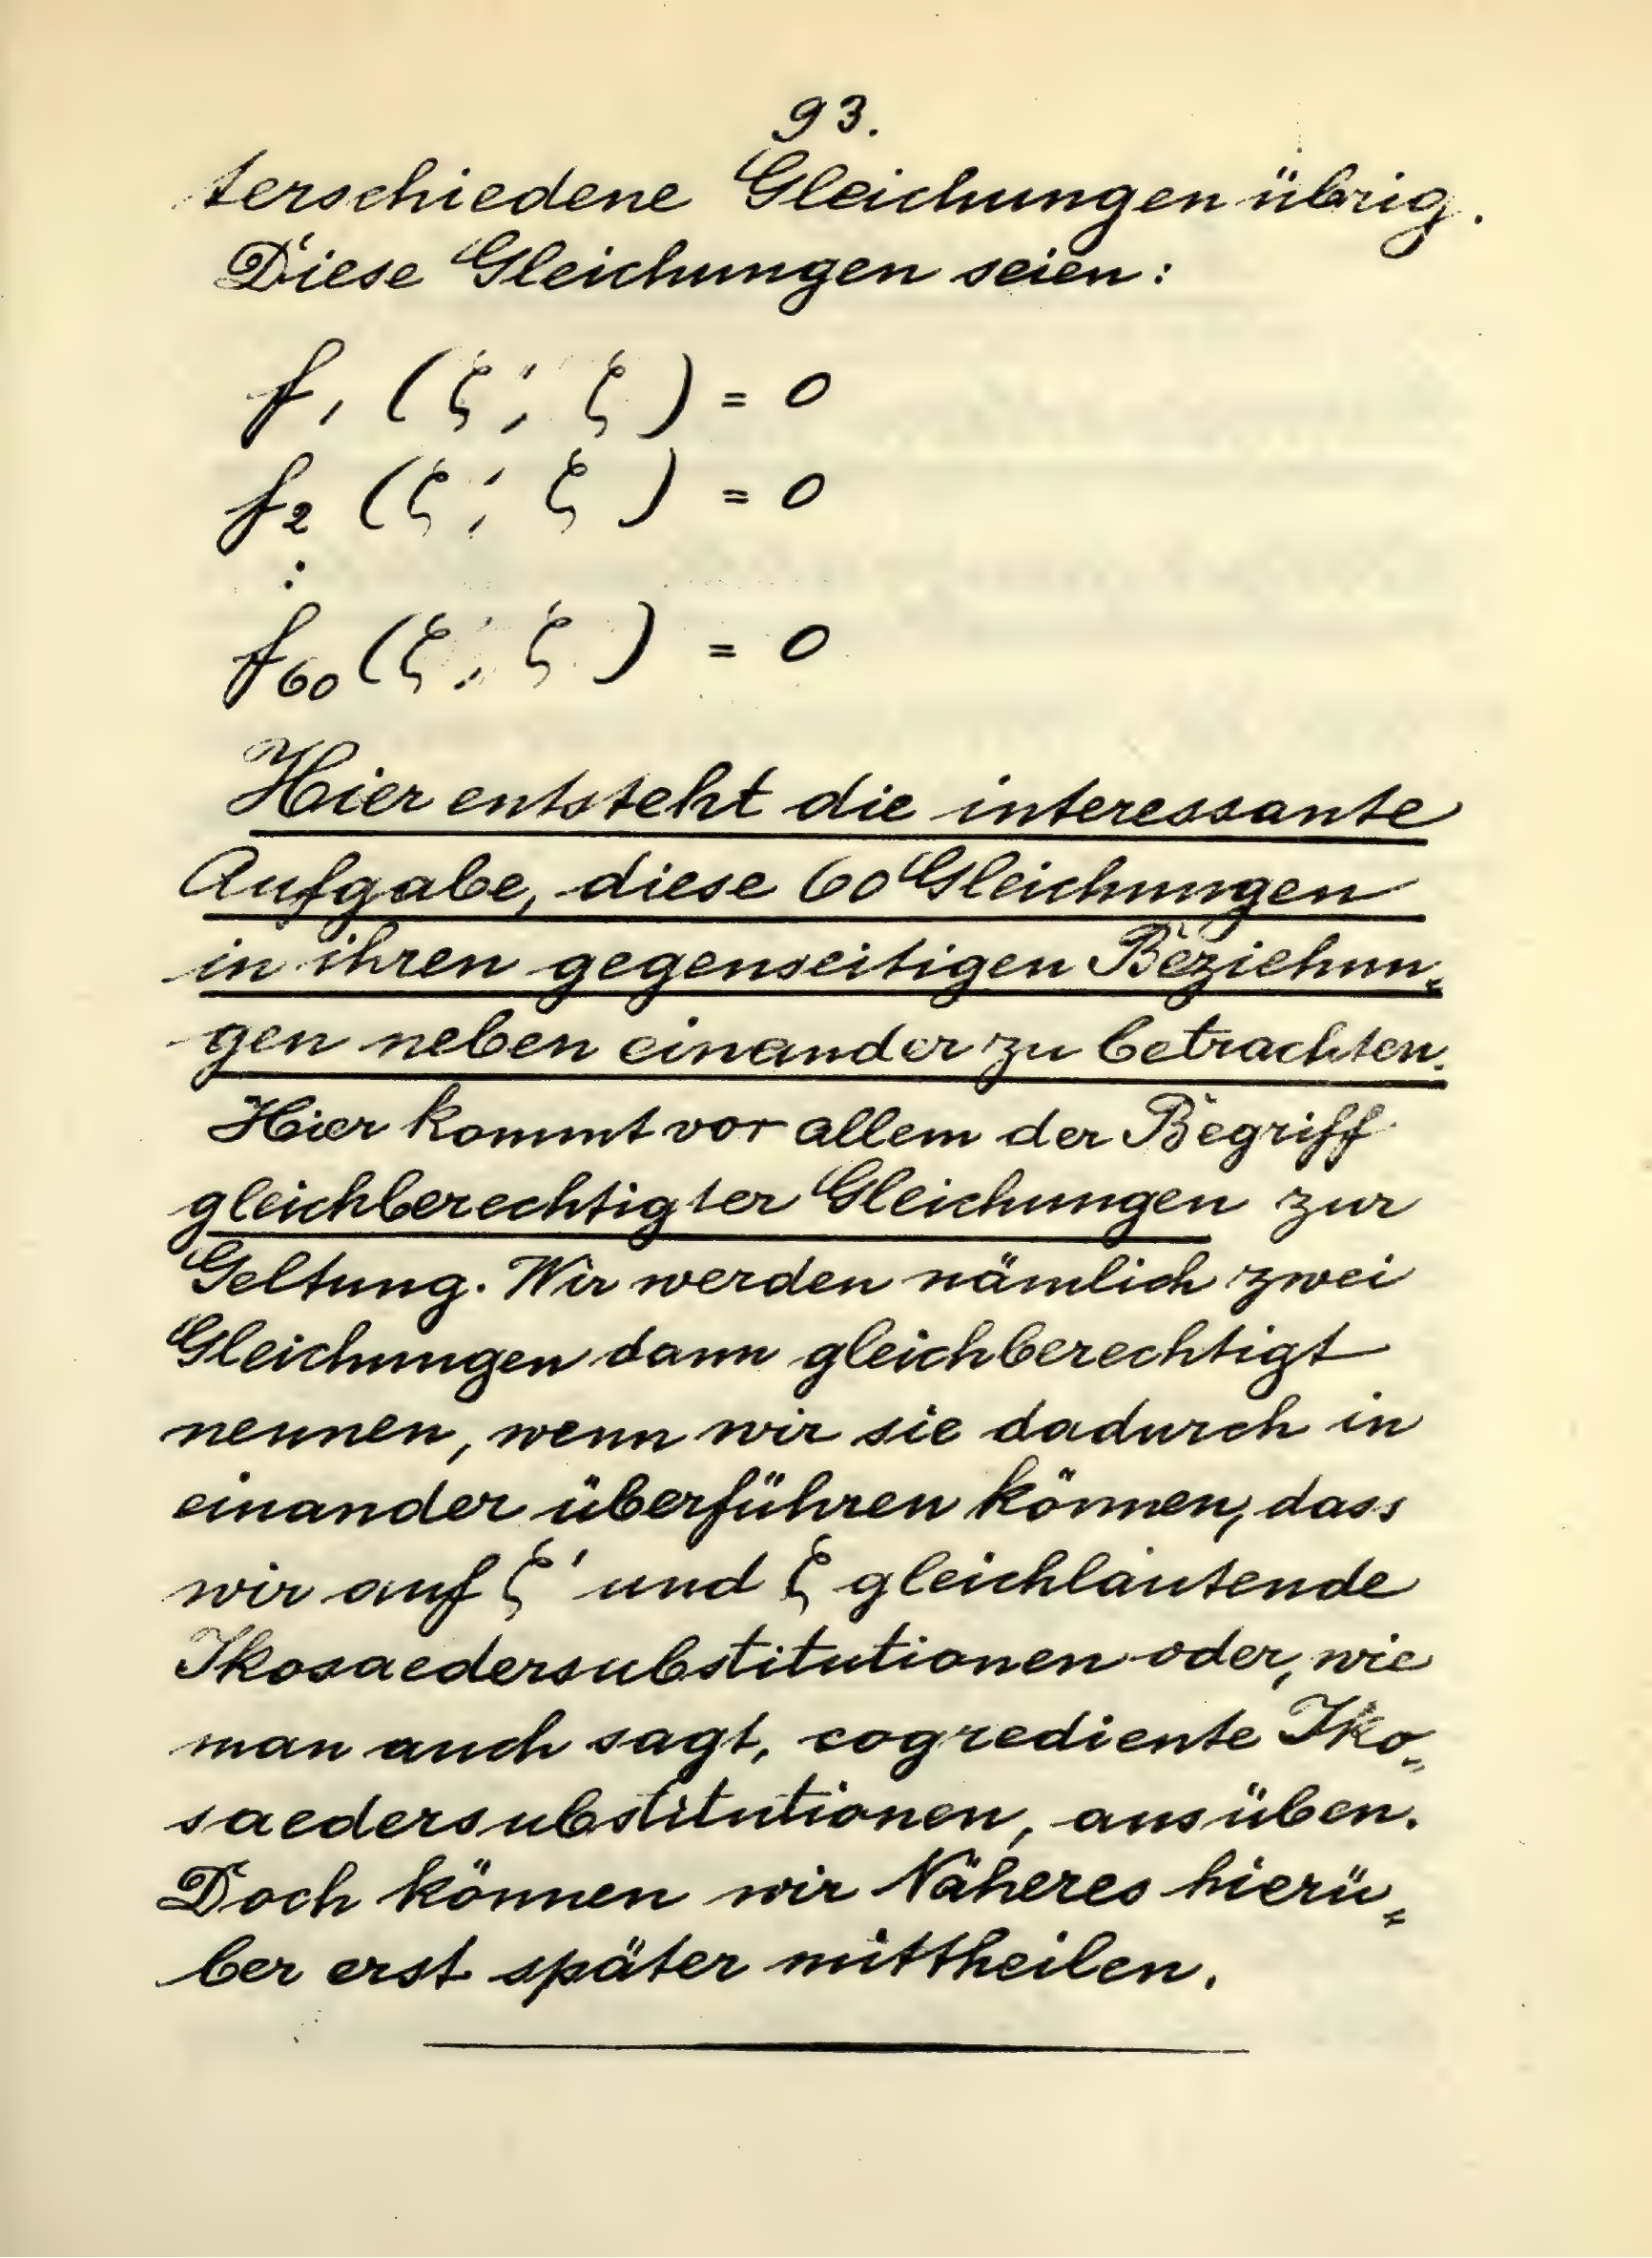 93.
terschiedene Gleichungen übrig.
Diese Gleichungen seien:
f₁ (ζ', ζ) = 0
f₂ (ζ', ζ) = 0
:
f₆₀ (ζ', ζ) = 0
Hier entsteht die interessante
Aufgabe, diese 60 Gleichungen
in ihren gegenseitigen Beziehun-
gen neben einander zu betrachten.
Hier kommt vor allem der Begriff
gleichberechtigter Gleichungen zur
Geltung. Wir werden nämlich zwei
Gleichungen dann gleichberechtigt
nennen, wenn wir sie dadurch in
einander überführen können, dass
wir auf ζ' und ζ gleichlautende
Ikosaedersubstitutionen oder, wie
man auch sagt, cogrediente Iko-
saedersubstitutionen, ausüben.
Doch können wir Näheres hierü-
ber erst später mittheilen.